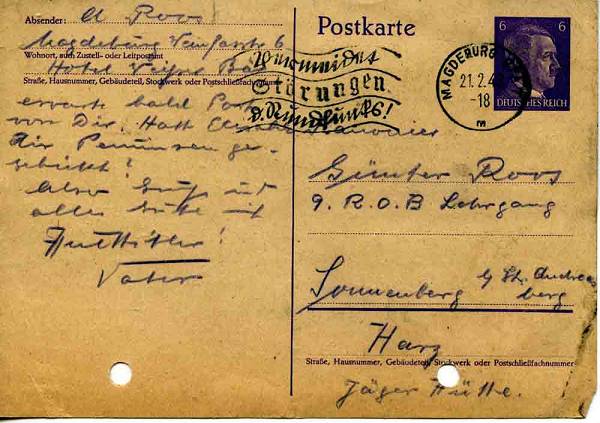 Absender: A Roos
Magdeburg
Wohnort, auch Zustell- oder Leitpostamt
Hotel
Straße, Hausnummer, Gebäudeteil, Stockwerk oder Postschließfachnummer
erwarte bald Post
von Dir. Hatt
dir ge-
schickt?
Also Gruß und
alles Gute mit
Heil Hitler!
Vater
Postkarte
Vermeidet
Störungen
d. Rundfunks!
MAGDEBURG
21.2.4
-18
m
6 6
DEUTSCHES REICH
Günter Roos
9. R.O.B Lehrgang
Sonnenberg b/ St. Andreas
berg
Harz
Straße, Hausnummer, Gebäudeteil, Stockwerk oder Postschließfachnummer
Jäger Hütte.